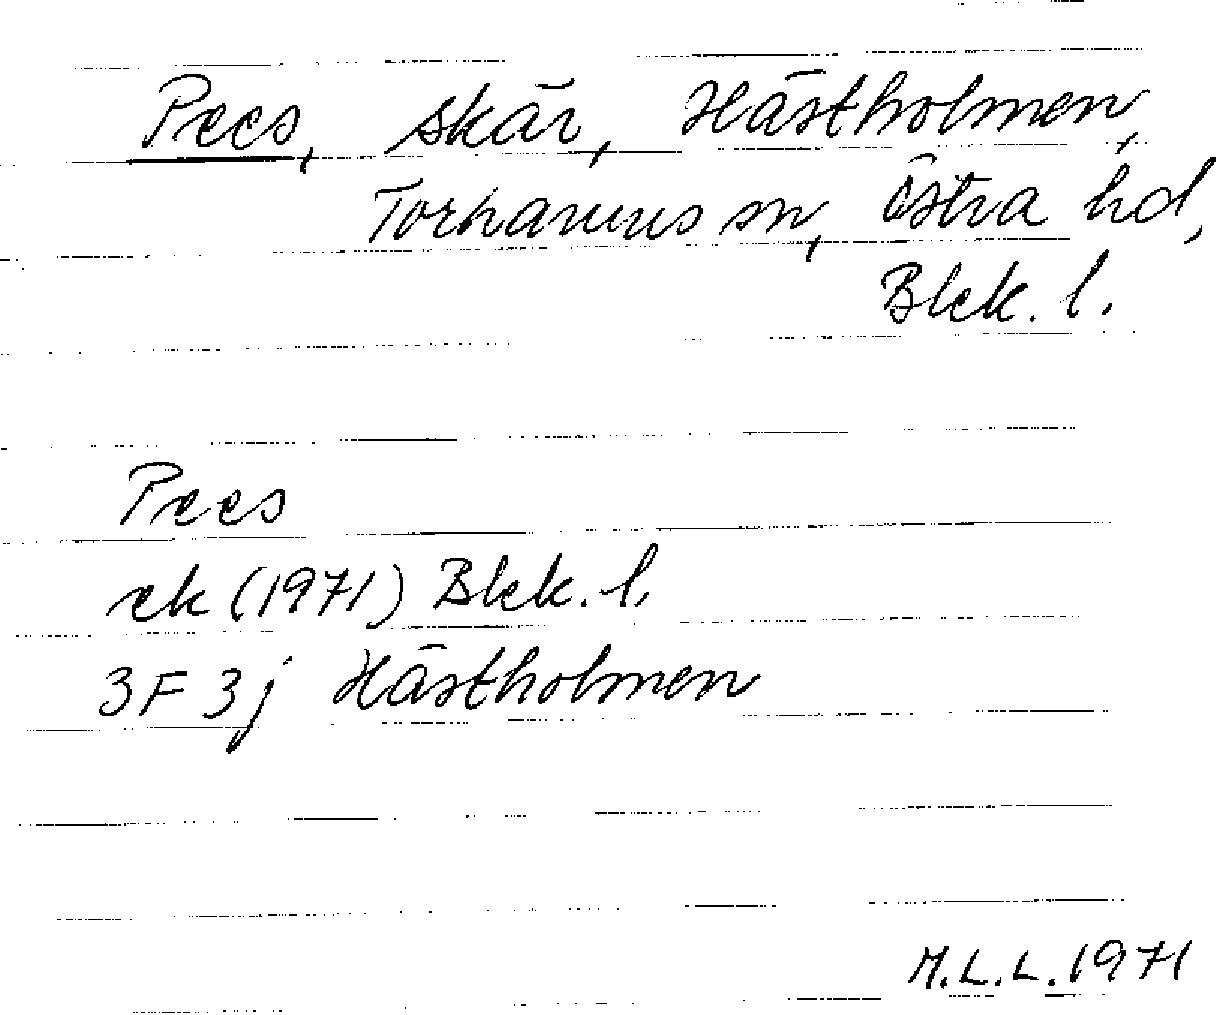 Pees, skär, Hästholmen,
Torhamns sn, Östra hd,
Blek. l.
Pees
ek (1971) Blek. l.
3F 3j Hästholmen
M.L.L. 1971